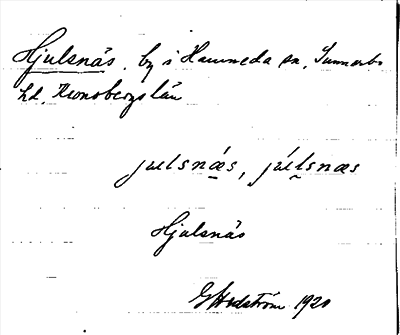 Hjulsnäs. by i Hamneda sn, Sunnerbo
hd, Kronobergs län
julsnæs, júlsnæs
Hjulsnäs
G Hedström 1920